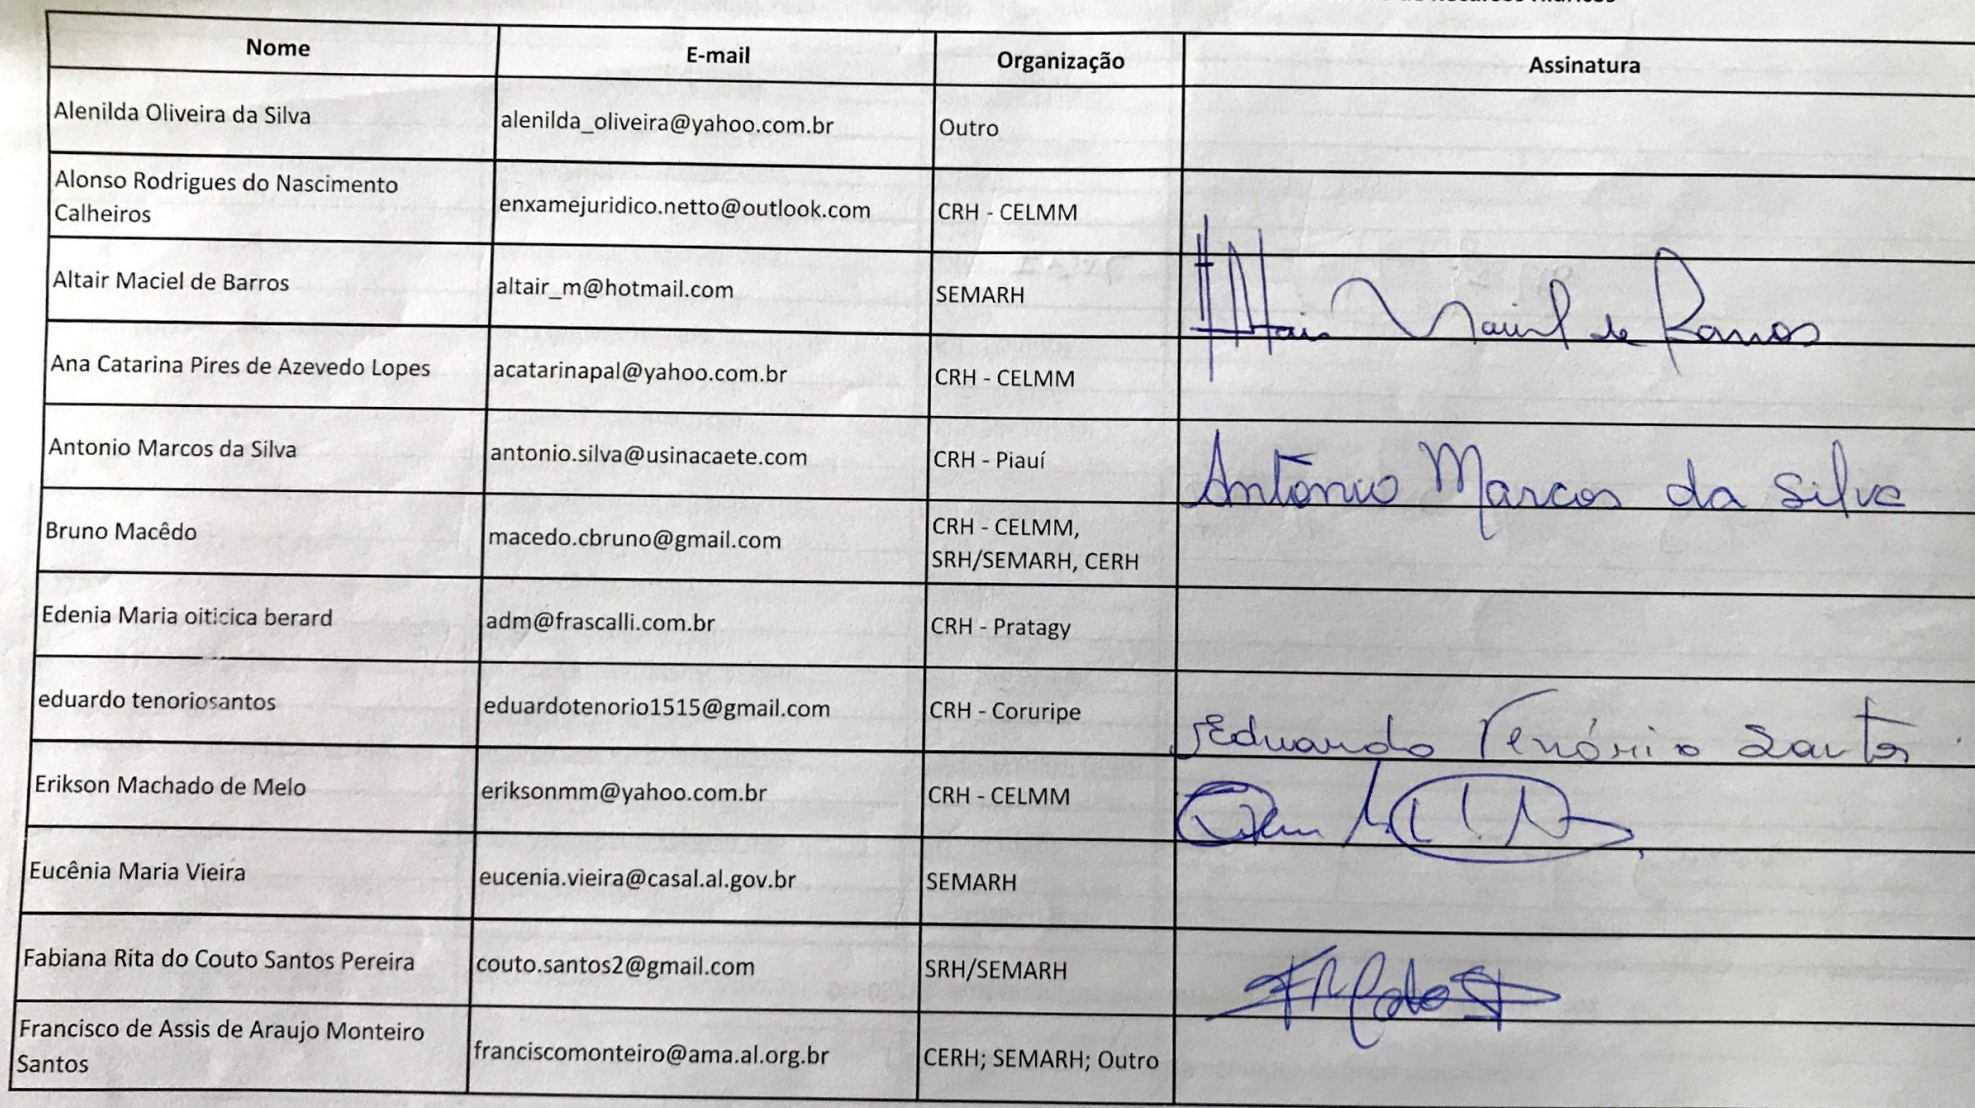 Nome E-mail Organização Assinatura
Alenilda Oliveira da Silva alenilda_oliveira@yahoo.com.br Outro
Alonso Rodrigues do Nascimento
Calheiros enxamejuridico.netto@outlook.com CRH - CELMM
Altair Maciel de Barros altair_m@hotmail.com SEMARH Altair Maciel de Barros
Ana Catarina Pires de Azevedo Lopes acatarinapal@yahoo.com.br CRH - CELMM
Antonio Marcos da Silva antonio.silva@usinacaete.com CRH - Piauí Antônio Marcos da Silva
Bruno Macêdo macedo.cbruno@gmail.com CRH - CELMM,
SRH/SEMARH, CERH
Edenia Maria oiticica berard adm@frascalli.com.br CRH - Pratagy
eduardo tenoriosantos eduardotenorio1515@gmail.com CRH - Coruripe Eduardo Tenório Santos
Erikson Machado de Melo eriksonmm@yahoo.com.br CRH - CELMM
Eucênia Maria Vieira eucenia.vieira@casal.al.gov.br SEMARH
Fabiana Rita do Couto Santos Pereira couto.santos2@gmail.com SRH/SEMARH
Francisco de Assis de Araujo Monteiro
Santos franciscomonteiro@ama.al.org.br CERH; SEMARH; Outro